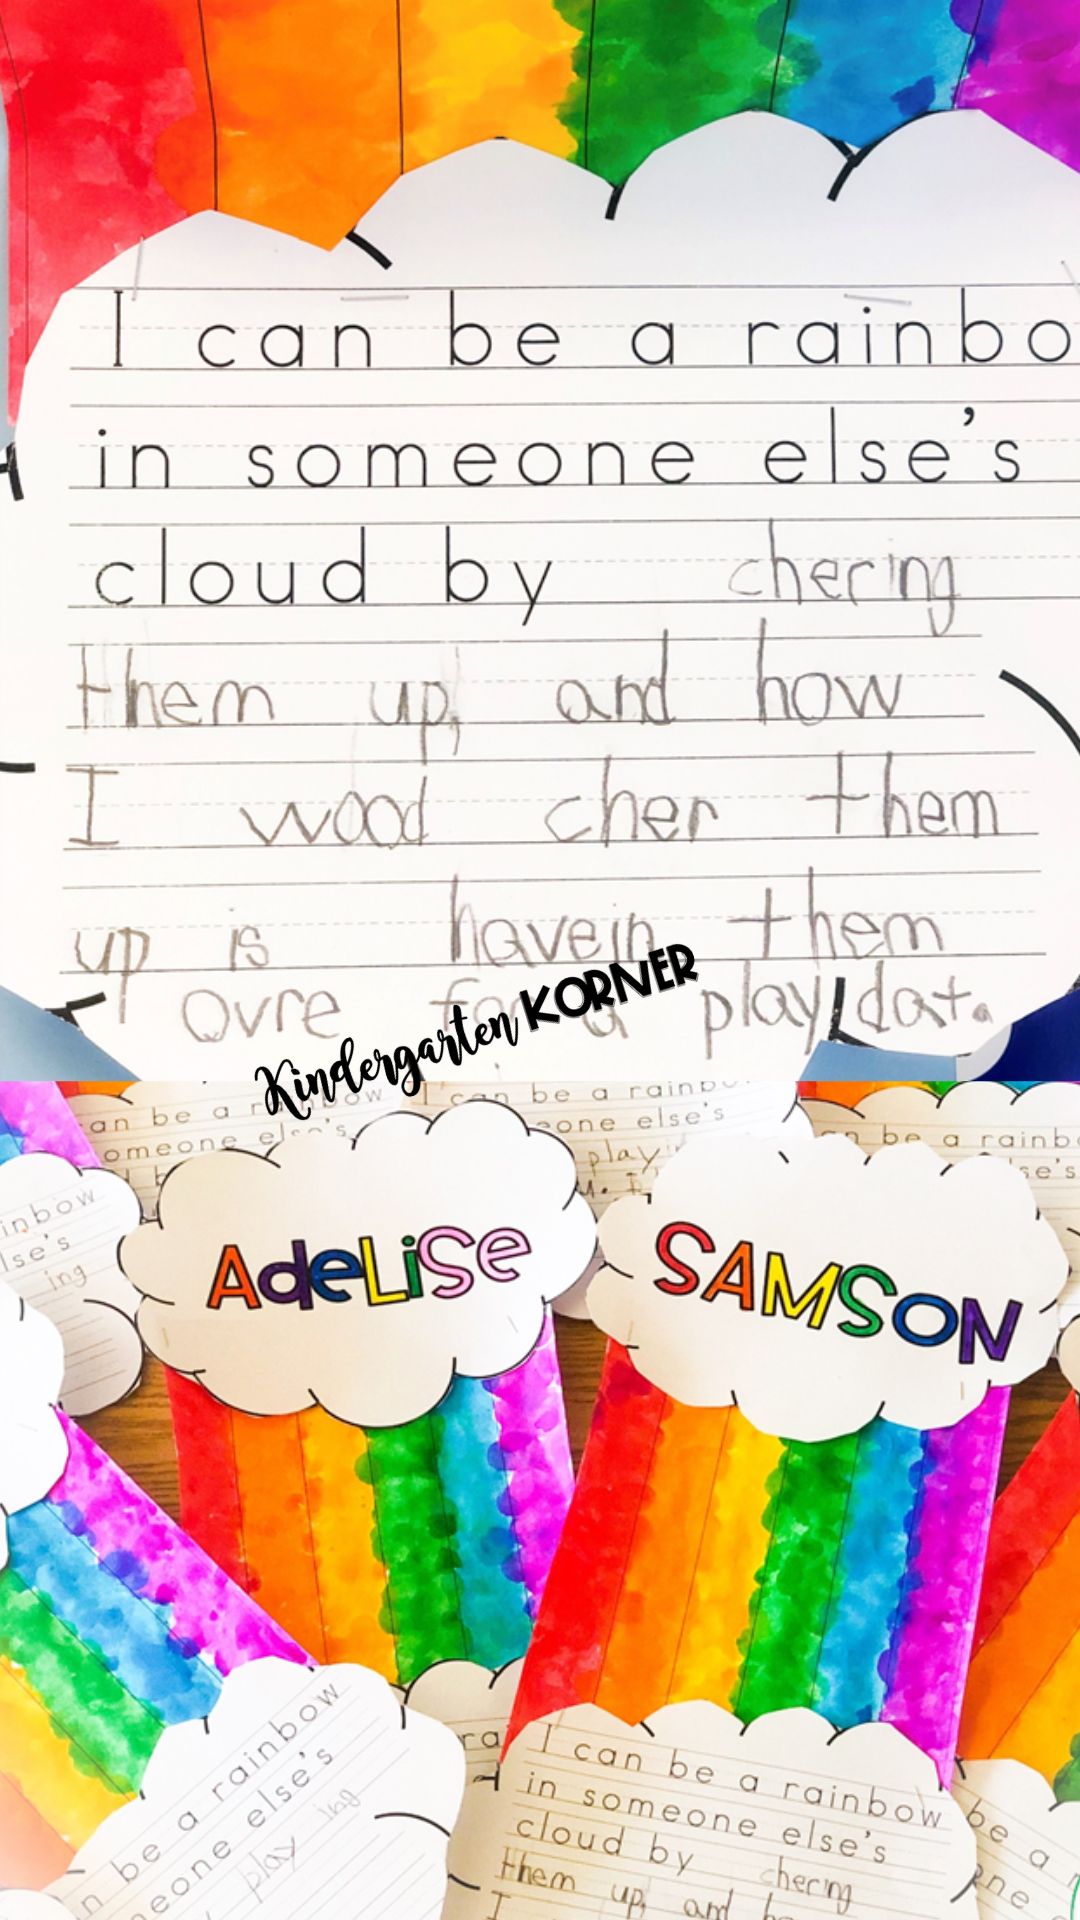 I can be a rainbo
in someone else's
cloud by chering
them up, and how
I wood cher them
up is havein them
ovre for a play dat.
Kindergarten KORNER
an be a rainbow
I can be a rainbow
omeone else's
eone else's
playi
n be a rainb
se's
inbow
lse's
ing
AdeLiSe
SAMSON
n be a rainbow
eone else's
play ing
ra
I can be a rainbow
in someone else's
cloud by chering
them up, and ho
I
be a
ne